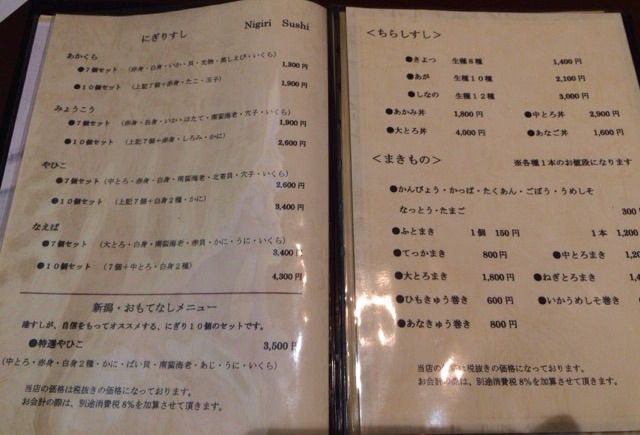 にぎりすし　Nigiri Sushi
あかくら
●７個セット　（赤身・白身・いか・貝・光物・蒸しえび・いくら）
1,300円
●１０個セット　（上記７個＋赤身・たこ・玉子）
1,900円
みょうこう
●７個セット　（赤身・白身・いか・ほたて・南蛮海老・穴子・いくら）
1,900円
●１０個セット　（上記７個＋赤身・しろみ・かに）
2,600円
やひこ
●７個セット　（中とろ・赤身・白身・南蛮海老・北寄貝・穴子・いくら）
2,600円
●１０個セット　（上記７個＋白身２種・かに）
3,400円
なえば
●７個セット　（大とろ・白身・南蛮海老・赤貝・かに・うに・いくら）
3,400円
●１０個セット　（７個＋中とろ・白身２種）
4,300円
新潟・おもてなしメニュー
すしが、自信をもってオススメする、にぎり１０個のセットです。
●特選やひこ　3,500円
（中とろ・赤身・白身２種・かに・ばい貝・南蛮海老・あじ・うに・いくら）
当店の価格は税抜きの価格になっております。
お会計の際は、別途消費税8％を加算させて頂きます。
＜ちらしすし＞
●きよつ　生種８種　1,400円
●あが　生種１０種　2,100円
●しなの　生種１２種　3,000円
●あかみ丼　1,800円　●中とろ丼　2,900円
●大とろ丼　4,000円　●あなご丼　1,600円
＜まきもの＞　※各種１本のお値段になります
●かんぴょう・かっぱ・たくあん・ごぼう・うめしそ
なっとう・たまご　300
●ふとまき　１個　150円　１本　1,200
●てっかまき　800円　●中とろまき
●大とろまき　1,800円　●ねぎとろまき
●ひもきゅう巻き　600円　●いかうめしそ巻き
●あなきゅうまき　800円
当店の価格は税抜きの価格になっております。
お会計の際は、別途消費税8％を加算させて頂きます。